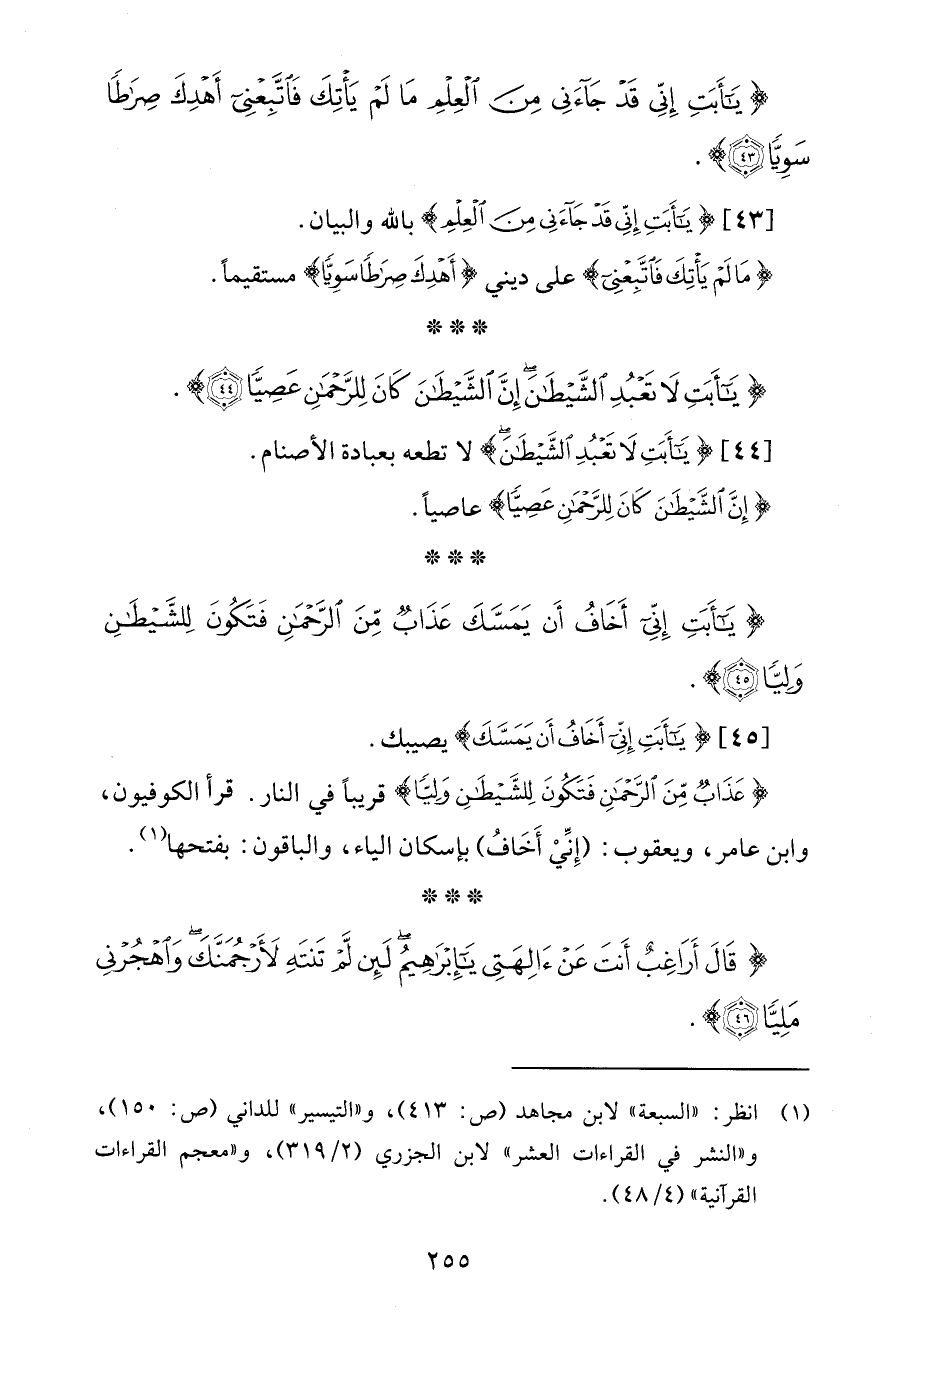 ﴿ يَٰٓأَبَتِ إِنِّي قَدۡ جَآءَنِي مِنَ ٱلۡعِلۡمِ مَا لَمۡ يَأۡتِكَ فَٱتَّبِعۡنِيٓ أَهۡدِكَ صِرَٰطٗا
سَوِيّٗا ٤٣ ﴾ .
[٤٣] ﴿ يَٰٓأَبَتِ إِنِّي قَدۡ جَآءَنِي مِنَ ٱلۡعِلۡمِ ﴾ بالله والبيان .
﴿ مَا لَمۡ يَأۡتِكَ فَٱتَّبِعۡنِيٓ ﴾ على ديني ﴿ أَهۡدِكَ صِرَٰطٗا سَوِيّٗا ﴾ مستقيماً .
* * *
﴿ يَٰٓأَبَتِ لَا تَعۡبُدِ ٱلشَّيۡطَٰنَۖ إِنَّ ٱلشَّيۡطَٰنَ كَانَ لِلرَّحۡمَٰنِ عَصِيّٗا ٤٤ ﴾ .
[٤٤] ﴿ يَٰٓأَبَتِ لَا تَعۡبُدِ ٱلشَّيۡطَٰنَۖ ﴾ لا تطعه بعبادة الأصنام .
﴿ إِنَّ ٱلشَّيۡطَٰنَ كَانَ لِلرَّحۡمَٰنِ عَصِيّٗا ﴾ عاصياً .
* * *
﴿ يَٰٓأَبَتِ إِنِّيٓ أَخَافُ أَن يَمَسَّكَ عَذَابٞ مِّنَ ٱلرَّحۡمَٰنِ فَتَكُونَ لِلشَّيۡطَٰنِ
وَلِيّٗا ٤٥ ﴾ .
[٤٥] ﴿ يَٰٓأَبَتِ إِنِّيٓ أَخَافُ أَن يَمَسَّكَ ﴾ يصيبك .
﴿ عَذَابٞ مِّنَ ٱلرَّحۡمَٰنِ فَتَكُونَ لِلشَّيۡطَٰنِ وَلِيّٗا ﴾ قريباً في النار . قرأ الكوفيون،
وابن عامر، ويعقوب: (إِنِّيْ أَخَافُ) بإسكان الياء، والباقون: بفتحها(١) .
* * *
﴿ قَالَ أَرَاغِبٌ أَنتَ عَنۡ ءَالِهَتِي يَٰٓإِبۡرَٰهِيمُۖ لَئِن لَّمۡ تَنتَهِ لَأَرۡجُمَنَّكَۖ وَٱهۡجُرۡنِي
مَلِيّٗا ٤٦ ﴾ .
(١) انظر: «السبعة» لابن مجاهد (ص: ٤١٣)، و«التيسير» للداني (ص: ١٥٠)،
و«النشر في القراءات العشر» لابن الجزري (٢/ ٣١٩)، و«معجم القراءات
القرآنية» (٤/ ٤٨).
٢٥٥